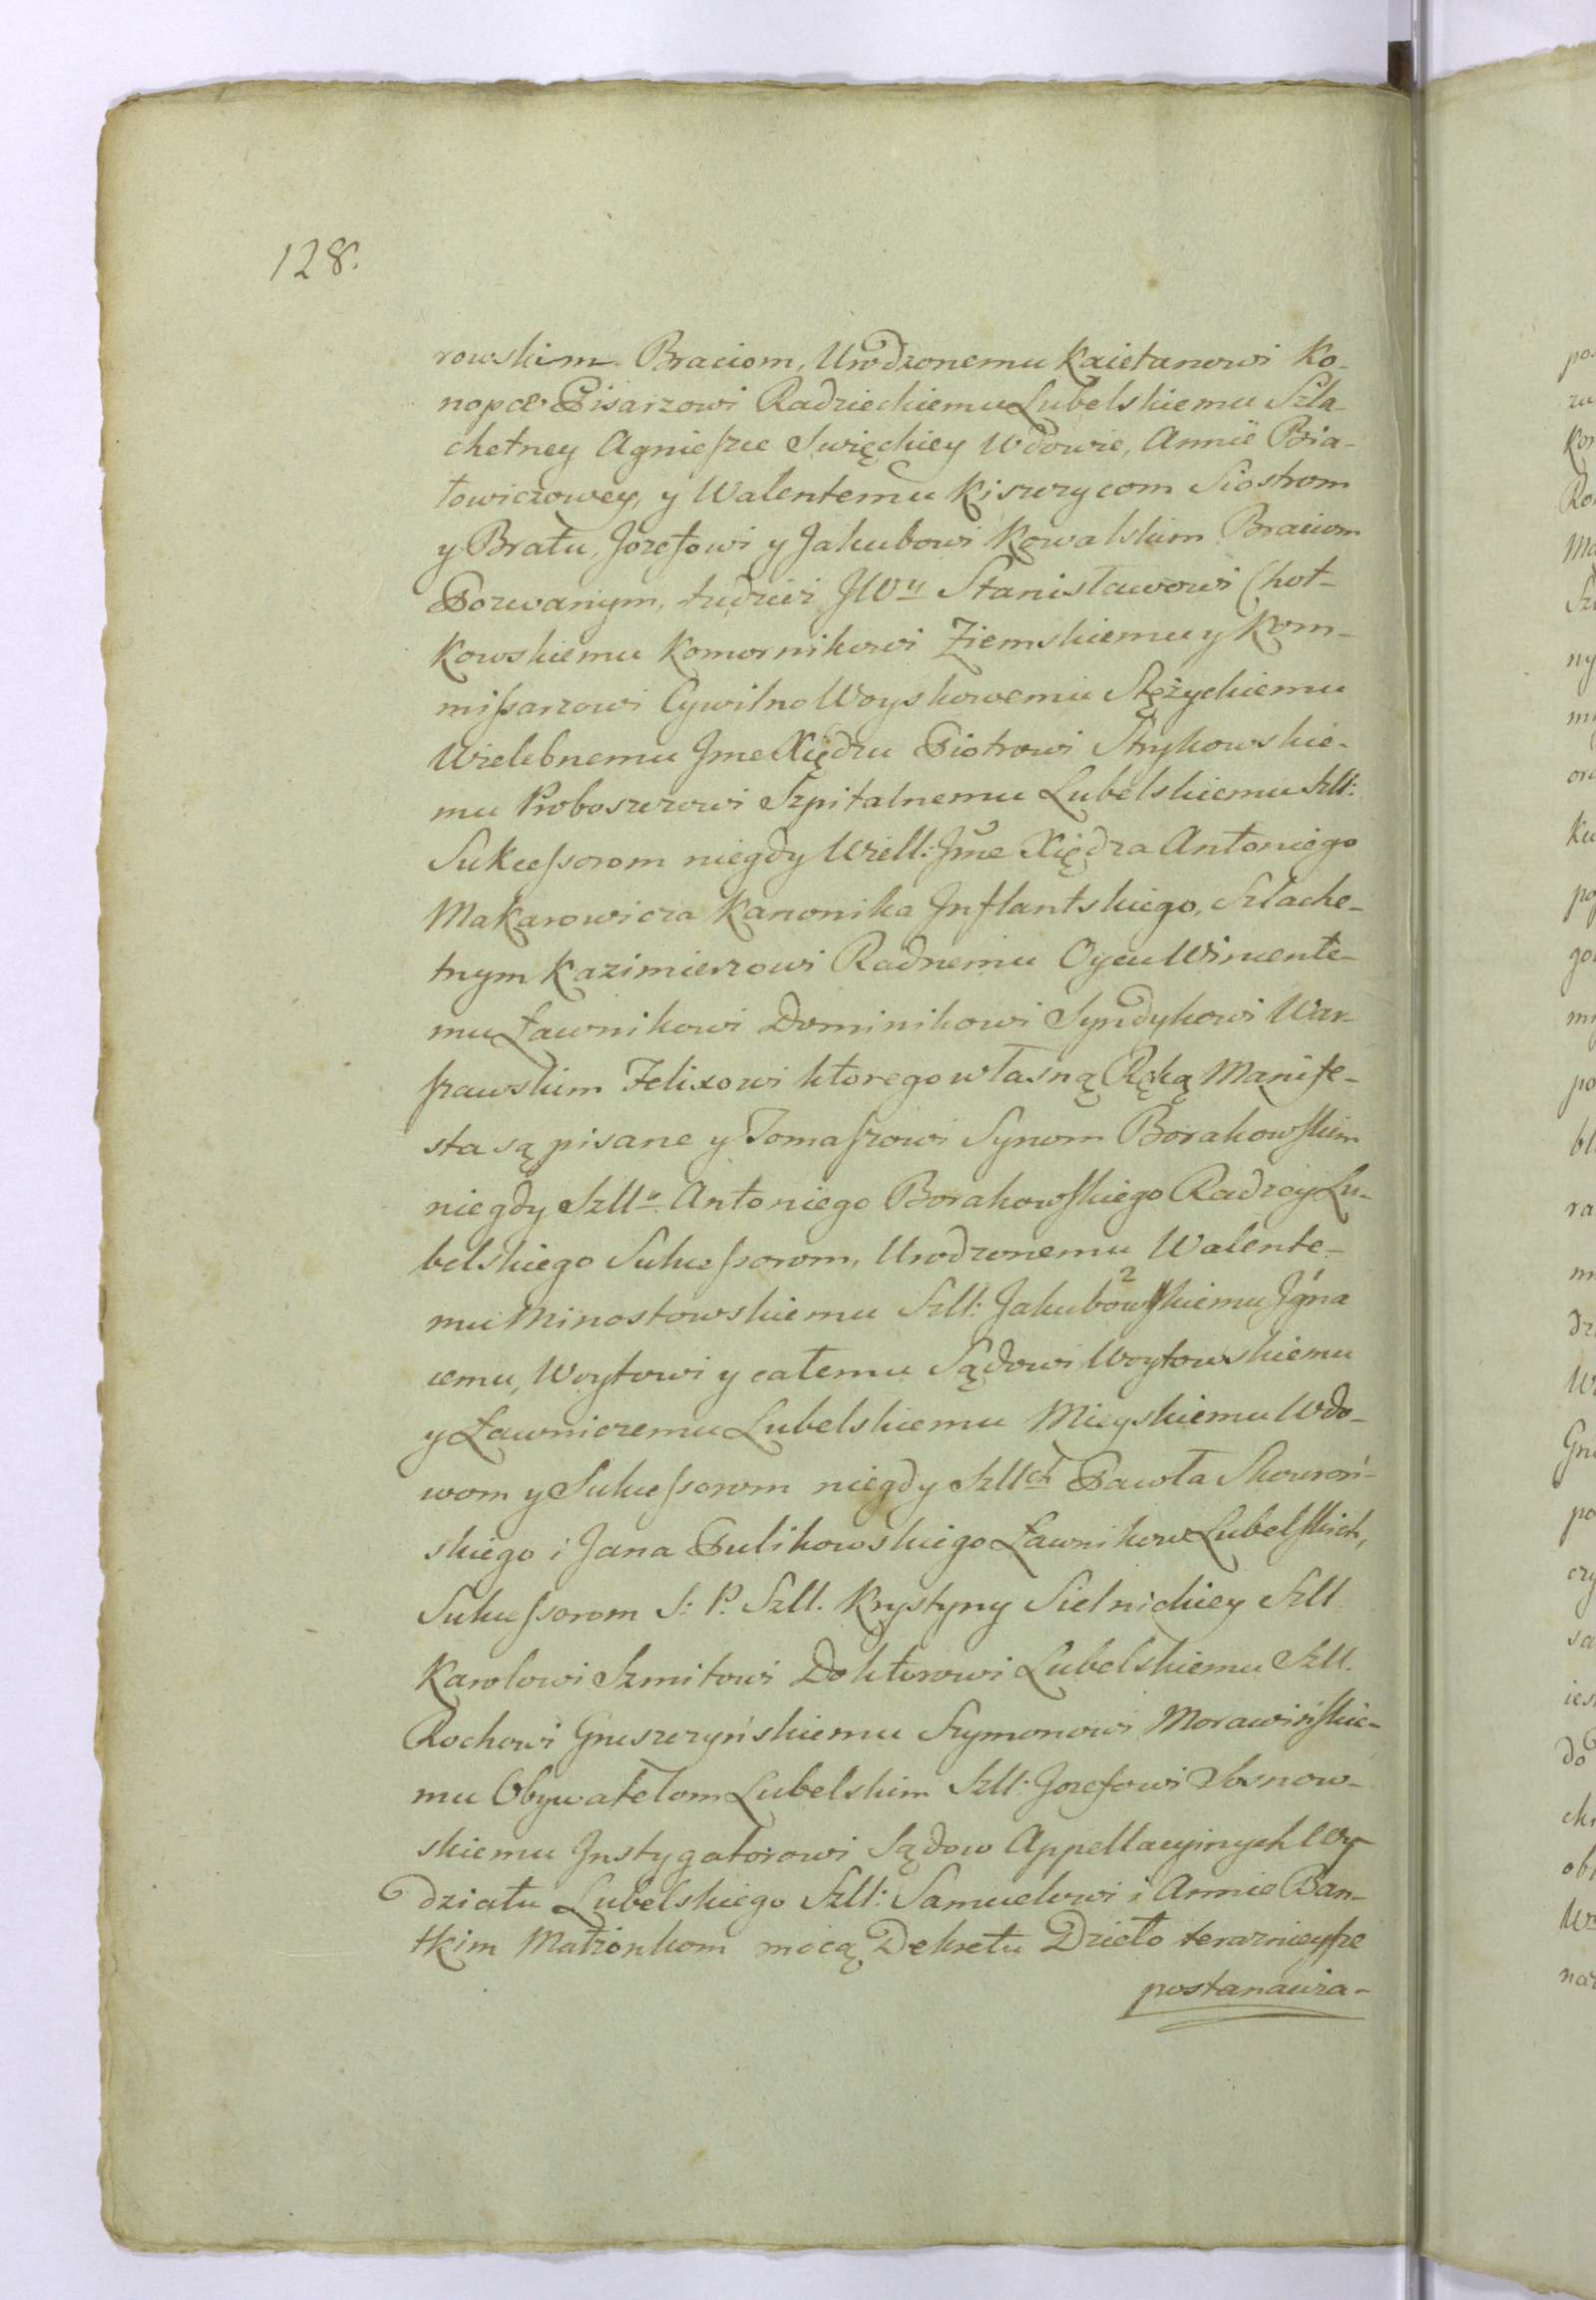 128.
rowskim Braciom, Urodzonemu Kaietanowi Ko-
nopce Pisarzowi Radzieckiemu Lubelskiemu Szla-
chetney Agnieſzce Swięckiey Wdowie, Annie Bia-
łowiczowey, y Walentemu Kiszwycom Siostrom
y Bratu, Jozefowi y Jakubowi Kowalskim Braciom
Pozwanym, tudzież JWu Stanisławowi Chot-
kowskiemu Komornikowi Ziemskiemu y Kom-
miſsarzowi Cywilno Woyskowemu Stężyckiemu
Wielebnemu Jmc Xiędzu Piotrowi Strykowskie-
mu Proboszczowi Szpitalnemu Lubelskiemu Szll:
Sukceſsorom niegdy Wiell: Jmc Xiędza Antoniego
Makarowicza Kanonika Jnflantskiego, Szlache-
tnym Kazimierzowi Radnemu Oycu Wincente-
mu Ławnikowi Dominikowi Syndykowi War-
ſzawskim Felixowi ktorego własną Ręką Manife-
sta są pisane y Tomaſzowi Synom Borakowſkim
niegdy Szllo Antoniego Borakowſkiego Radzcy Lu-
belskiego Sukceſsorom, Urodzonemu Walente-
mu Minostowskiemu Szll: Jakubowſkiemu 2 Jgna
cemu, Woytowi y całemu Sądowi Woytowskiemu
y Ławniczemu Lubelskiemu Mieyskiemu Wdo-
wom y Sukceſsorom niegdy Szllch Pawła Skowroń-
skiego i Jana Pulikowskiego Ławnikow Lubelſkich,
Sukceſsorom S: P. Szll. Krystyny Sielnickiey Szll.
Karolowi Szmitowi Doktorowi Lubelskiemu Szll.
Rochowi Gruszczyńskiemu Szymonowi Morawińſkie-
mu Obywatelom Lubelskim Szll: Jozefowi Sosnow-
skiemu Jnstygatorowi Sądow Appellacyinych Wy-
działu Lubelskiego Szll: Samuelowi i Annie Ban-
tkim Małżonkom mocą Dekretu Dzieło teraznieyſze
postanawia-